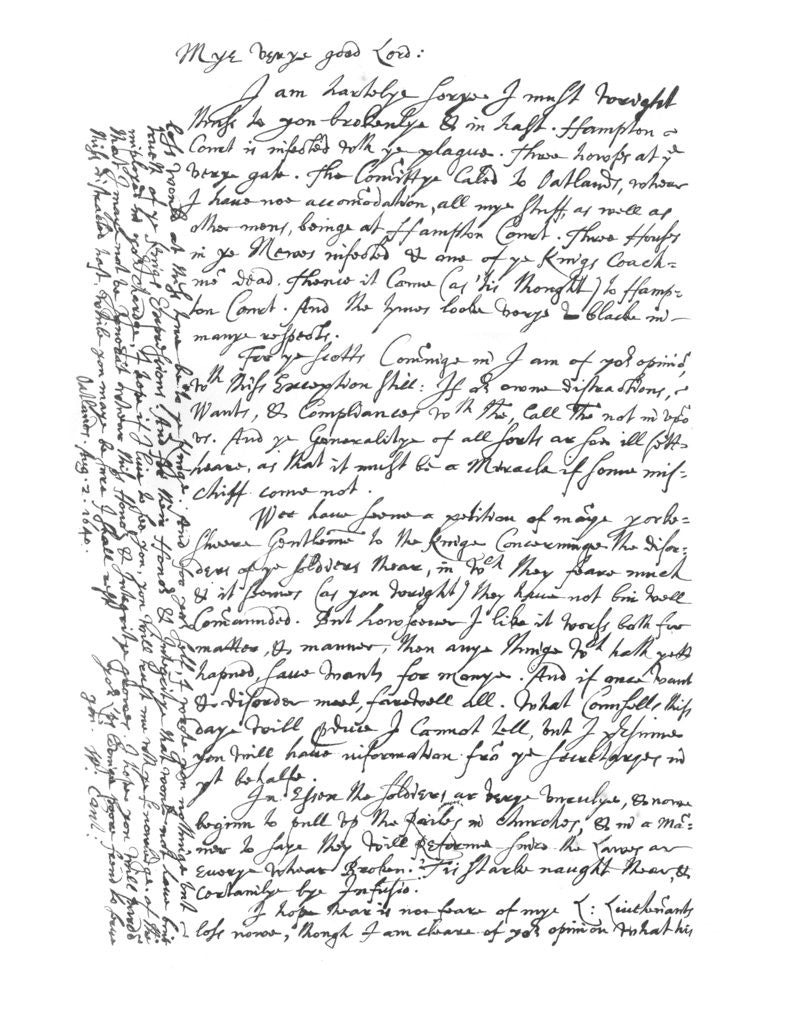 Mye verye good Lord:
I am hartelye sorye I must wright
thuss to you brokenlye & in hast. Hampton
Court is infected wth ye plague. Three howses at ye
verye gate. The Comittye Caled to Oatlands, whear
I have noe accomodation, all mye stuff, as well as
other mens, beinge at Hampton Court. Three Houses
in ye Mewes infected & one of ye Kings Coach=
mē dead. Thence it Came (as 'tis thought) to Hamp=
ton Court. And the tymes looke verye blacke in
manye respects.
For ye Scotts Cominge in I am of yor opiniō,
wth this Exception still: If or owne distractions,
Wants, & Compliances wth thē, Call thē not in upō
us. And ye Generalitye of all sorts ar soe ill sett
heare, as that it must be a Miracle if some mis=
chiff come not.
Wee have seene a petition of manye yorke=
sheere Gentlemē to the Kinge Concerninge the disor=
ders of ye soldiers thear, in wch they feare much
& it seemes (as you wright) they have not bin well
Comanded. But howsoever I like it worss both for
matter, & manner, then anye thinge wch hath yett
hapned save wants for monye. And if once want
& disorder meet, farewell all. What Counsells this
daye will pduce I Cannot tell, but I presume
you will have information frō ye secretaryes in
yt behalfe.
In Essex the soldiers ar verye unrulye, & nowe
beginn to pull up the Railes in churches, & in a mā=
ner to saye they will Reforme since the Lawes ar
Everye whear Broken. 'Tis starke naught thear, &
Certainlye bye Infusiō.
I hope thear is noe feare of mye L: Liuetenants
loss nowe, though I am cleare of yor opinion what his
loss would at this tyme be to ye Kinge. And
much of ye Kings Expressions. And
employed to yor charge. I hope I
that I maye not be
this distracted hast, while you maye be sure I shall rest
Yor Lps
Oatlands. Aug. 2. 1640.
W: Cant.